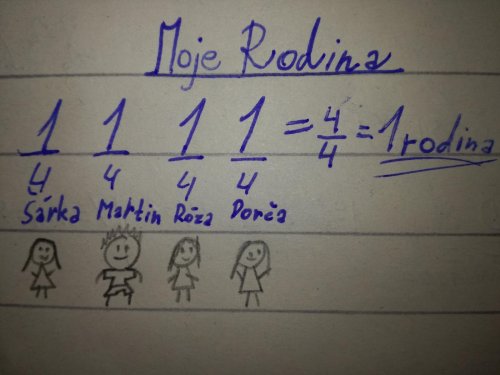 Moje Rodina
1/4 1/4 1/4 1/4 = 4/4 = 1 rodina
Šárka Martin Róza Dorča